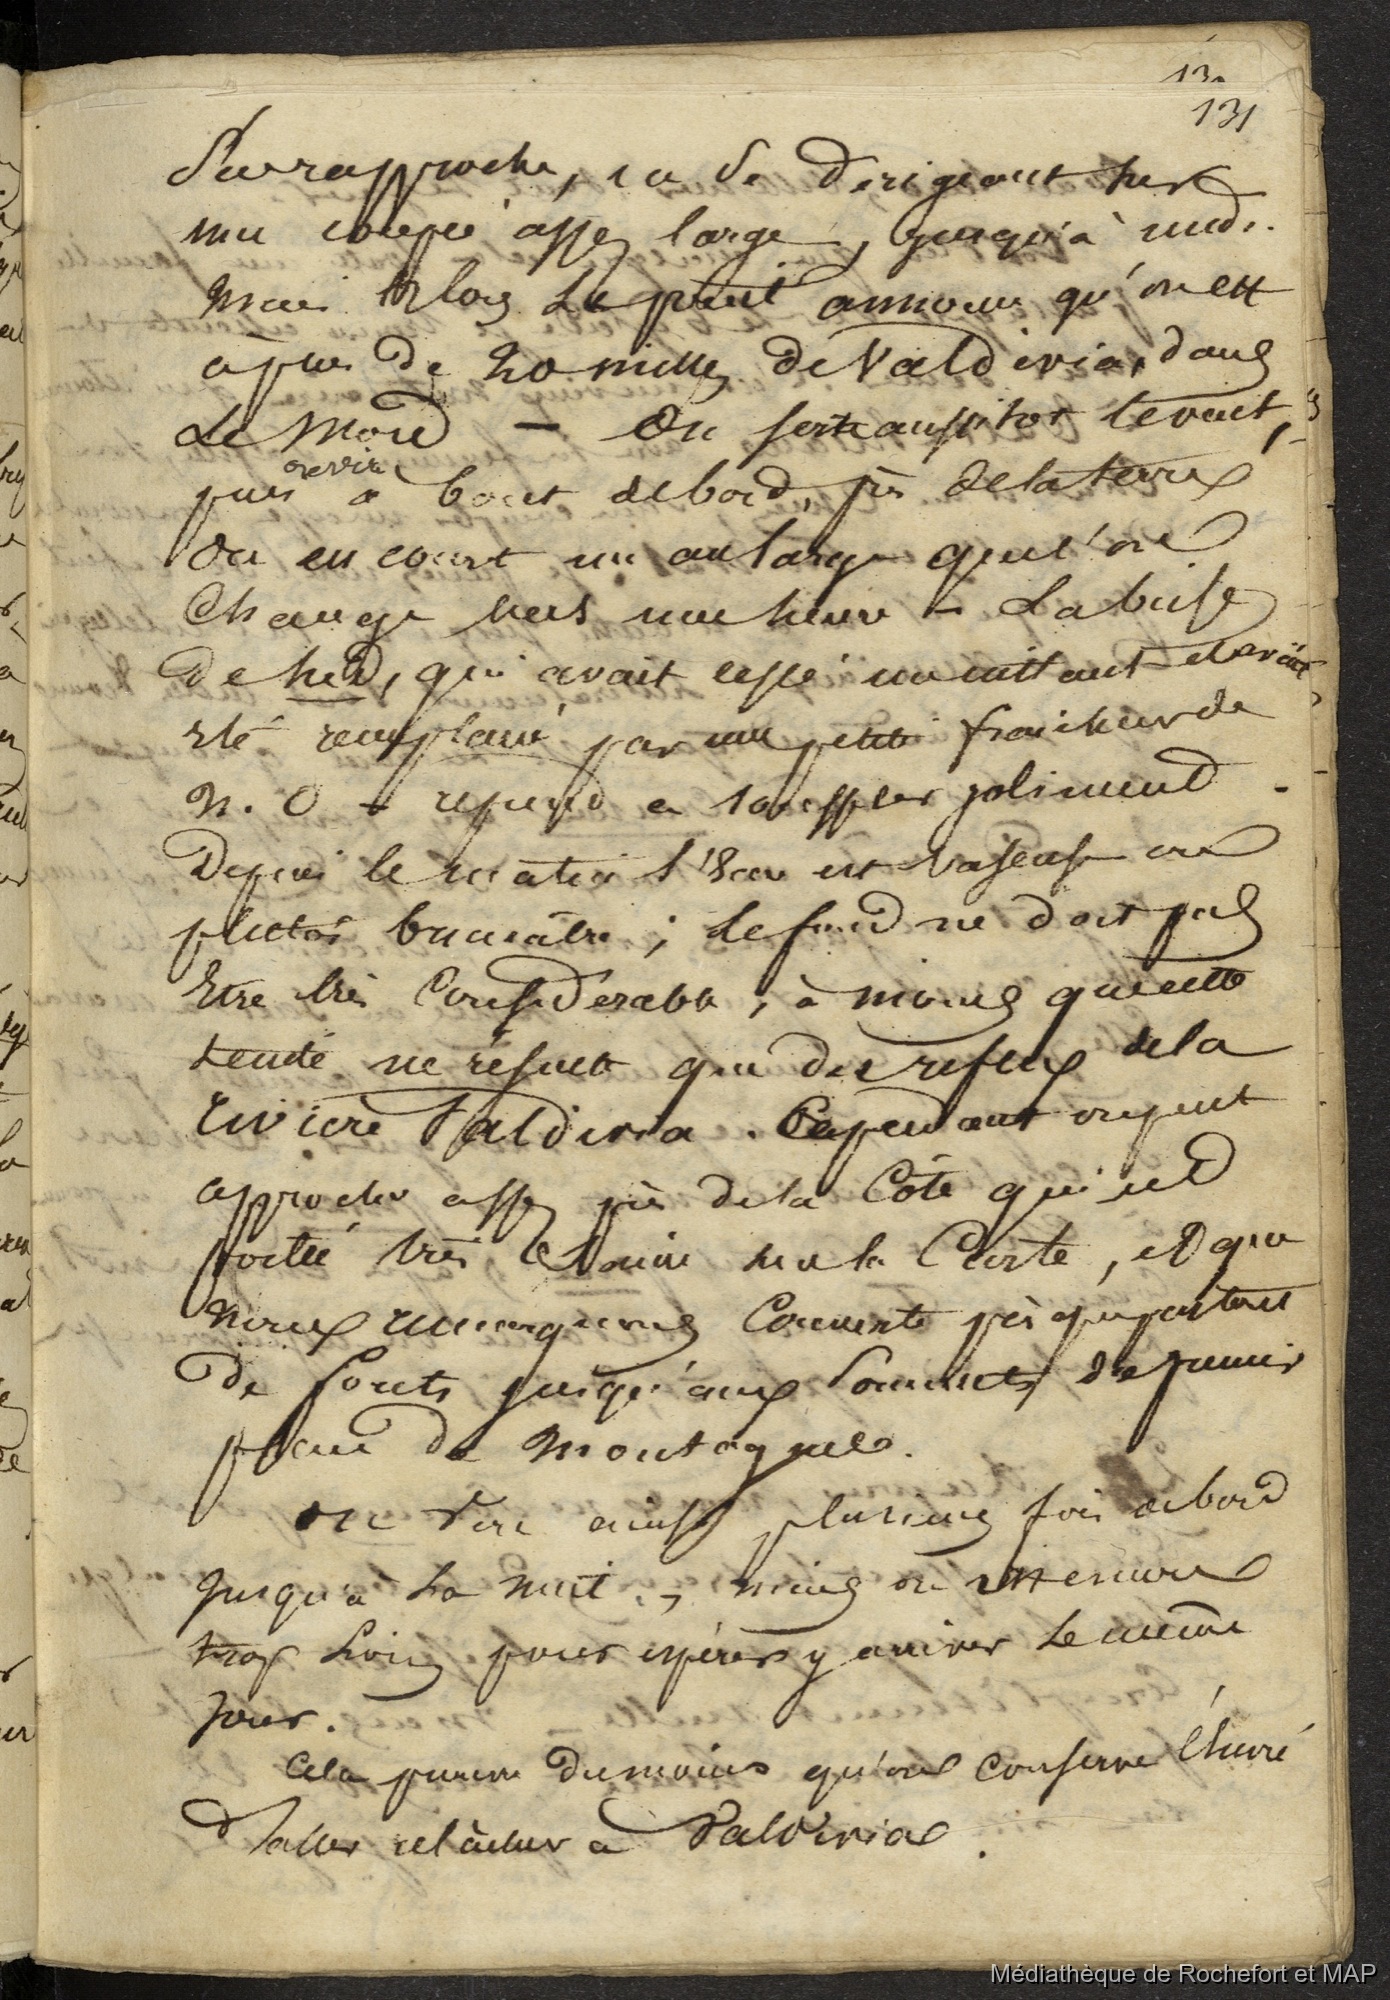 130
131
s'en rapproche, en se dirigeant sur
une coupée assez large, jusqu'à midi.
mais alors le point annonce qu'on est
à plus de 20 milles de Valdivia, dans
le Nord — On serre aussitot le vent,
puis on vire à bout de bord, près de la terre
On en court un au large que l'on
change vers une heure — La brise
de sud, qui avait cessé un instant et avait
été remplacée par une petite fraicheur de
N. O — reprend à souffler joliment.
Depuis le matin l'Eau est vaseuse ou
plutôt brunâtre; le fond ne doit pas
Etre très considerable, à moins que cette
teinte ne résulte que des reflux de la
rivière Valdivia. Cependant on peut
approcher assez près de la Côte qui est
portée très saine sur la Carte, et que
nous remarquons couverte presque partout
de forêts jusqu'aux sommets du premier
plan de montagnes.
on vire ainsi plusieurs fois de bord
jusqu'à la nuit, mais on est encore
trop loin pour espérer y arriver le même
jour.
Cela prouve du moins qu'on conserve l'idée
d'aller relâcher à Valdivia.
Médiathèque de Rochefort et MAP